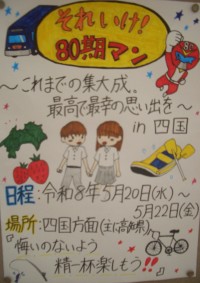 それいけ!
80期マン
～これまでの集大成、
最高で最幸の思い出を～
in 四国
日程:令和8年5月20日(水)～
5月22日(金)
場所:四国方面(主に高知県)
『悔いのないよう
精一杯楽しもう!!』